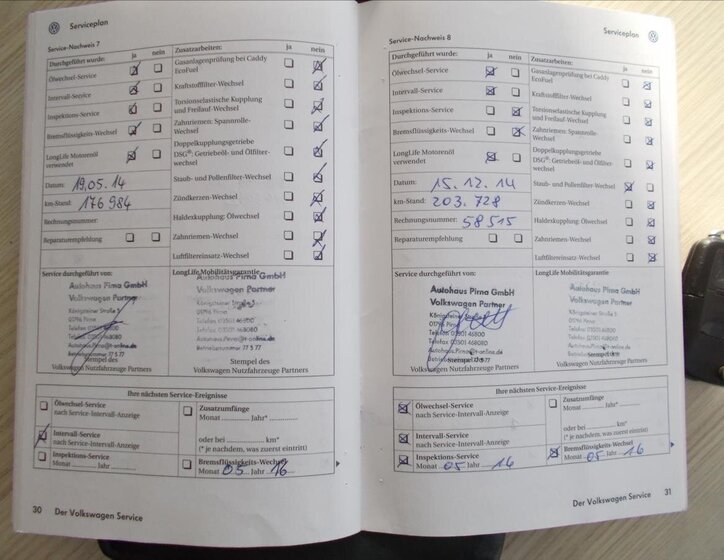 Serviceplan
Service-Nachweis 7
Durchgeführt wurde: ja nein
Ölwechsel-Service
Intervall-Service
Inspektions-Service
Bremsflüssigkeits-Wechsel
LongLife Motorenöl
verwendet
Datum: 19.05.14
km-Stand: 176 984
Rechnungsnummer:
Reparaturempfehlung
Zusatzarbeiten: ja nein
Gasanlagenprüfung bei Caddy
EcoFuel
Kraftstofffilter-Wechsel
Torsionselastische Kupplung
und Freilauf-Wechsel
Zahnriemen: Spannrolle-
Wechsel
Doppelkupplungsgetriebe
DSG®: Getriebeöl- und Ölfilter-
wechsel
Staub- und Pollenfilter-Wechsel
Zündkerzen-Wechsel
Haldexkupplung: Ölwechsel
Zahnriemen-Wechsel
Luftfiltereinsatz-Wechsel
Service durchgeführt von:
Autohaus Pirna GmbH
Volkswagen Partner
Königsteiner Straße 5
01796 Pirna
Telefon 03501 46800
Telefax 03501 468080
Autohaus.Pirna@t-online.de
Betriebsnummer 77 5 77
Stempel des
Volkswagen Nutzfahrzeuge Partners
LongLife Mobilitätsgarantie
Autohaus Pirna GmbH
Volkswagen Partner
Königsteiner Straße 5
01796 Pirna
Telefon 03501 46800
Telefax 03501 468080
Autohaus.Pirna@t-online.de
Betriebsnummer 77 5 77
Stempel des
Volkswagen Nutzfahrzeuge Partners
Ihre nächsten Service-Ereignisse
Ölwechsel-Service
nach Service-Intervall-Anzeige
Intervall-Service
nach Service-Intervall-Anzeige
Inspektions-Service
Monat Jahr
Zusatzumfänge
Monat Jahr*
oder bei km*
(* je nachdem, was zuerst eintritt)
Bremsflüssigkeits-Wechsel
Monat 05 Jahr 16
30 Der Volkswagen Service
Serviceplan
Service-Nachweis 8
Durchgeführt wurde: ja nein
Ölwechsel-Service
Intervall-Service
Inspektions-Service
Bremsflüssigkeits-Wechsel
LongLife Motorenöl
verwendet
Datum: 15.12.14
km-Stand: 203.728
Rechnungsnummer: 58515
Reparaturempfehlung
Zusatzarbeiten: ja nein
Gasanlagenprüfung bei Caddy
EcoFuel
Kraftstofffilter-Wechsel
Torsionselastische Kupplung
und Freilauf-Wechsel
Zahnriemen: Spannrolle-
Wechsel
Doppelkupplungsgetriebe
DSG®: Getriebeöl- und Ölfilter-
wechsel
Staub- und Pollenfilter-Wechsel
Zündkerzen-Wechsel
Haldexkupplung: Ölwechsel
Zahnriemen-Wechsel
Luftfiltereinsatz-Wechsel
Service durchgeführt von:
Autohaus Pirna GmbH
Volkswagen Partner
Königsteiner Straße 5
01796 Pirna
Telefon 03501 46800
Telefax 03501 468080
Autohaus.Pirna@t-online.de
Stempel des
Volkswagen Nutzfahrzeuge Partners
LongLife Mobilitätsgarantie
Autohaus Pirna GmbH
Volkswagen Partner
Königsteiner Straße 5
01796 Pirna
Telefon 03501 46800
Telefax 03501 468080
Autohaus.Pirna@t-online.de
Stempel des
Volkswagen Nutzfahrzeuge Partners
Ihre nächsten Service-Ereignisse
Ölwechsel-Service
nach Service-Intervall-Anzeige
Intervall-Service
nach Service-Intervall-Anzeige
Inspektions-Service
Monat 05 Jahr 16
Zusatzumfänge
Monat Jahr*
oder bei km*
(* je nachdem, was zuerst eintritt)
Bremsflüssigkeits-Wechsel
Monat 05 Jahr 16
Der Volkswagen Service 31